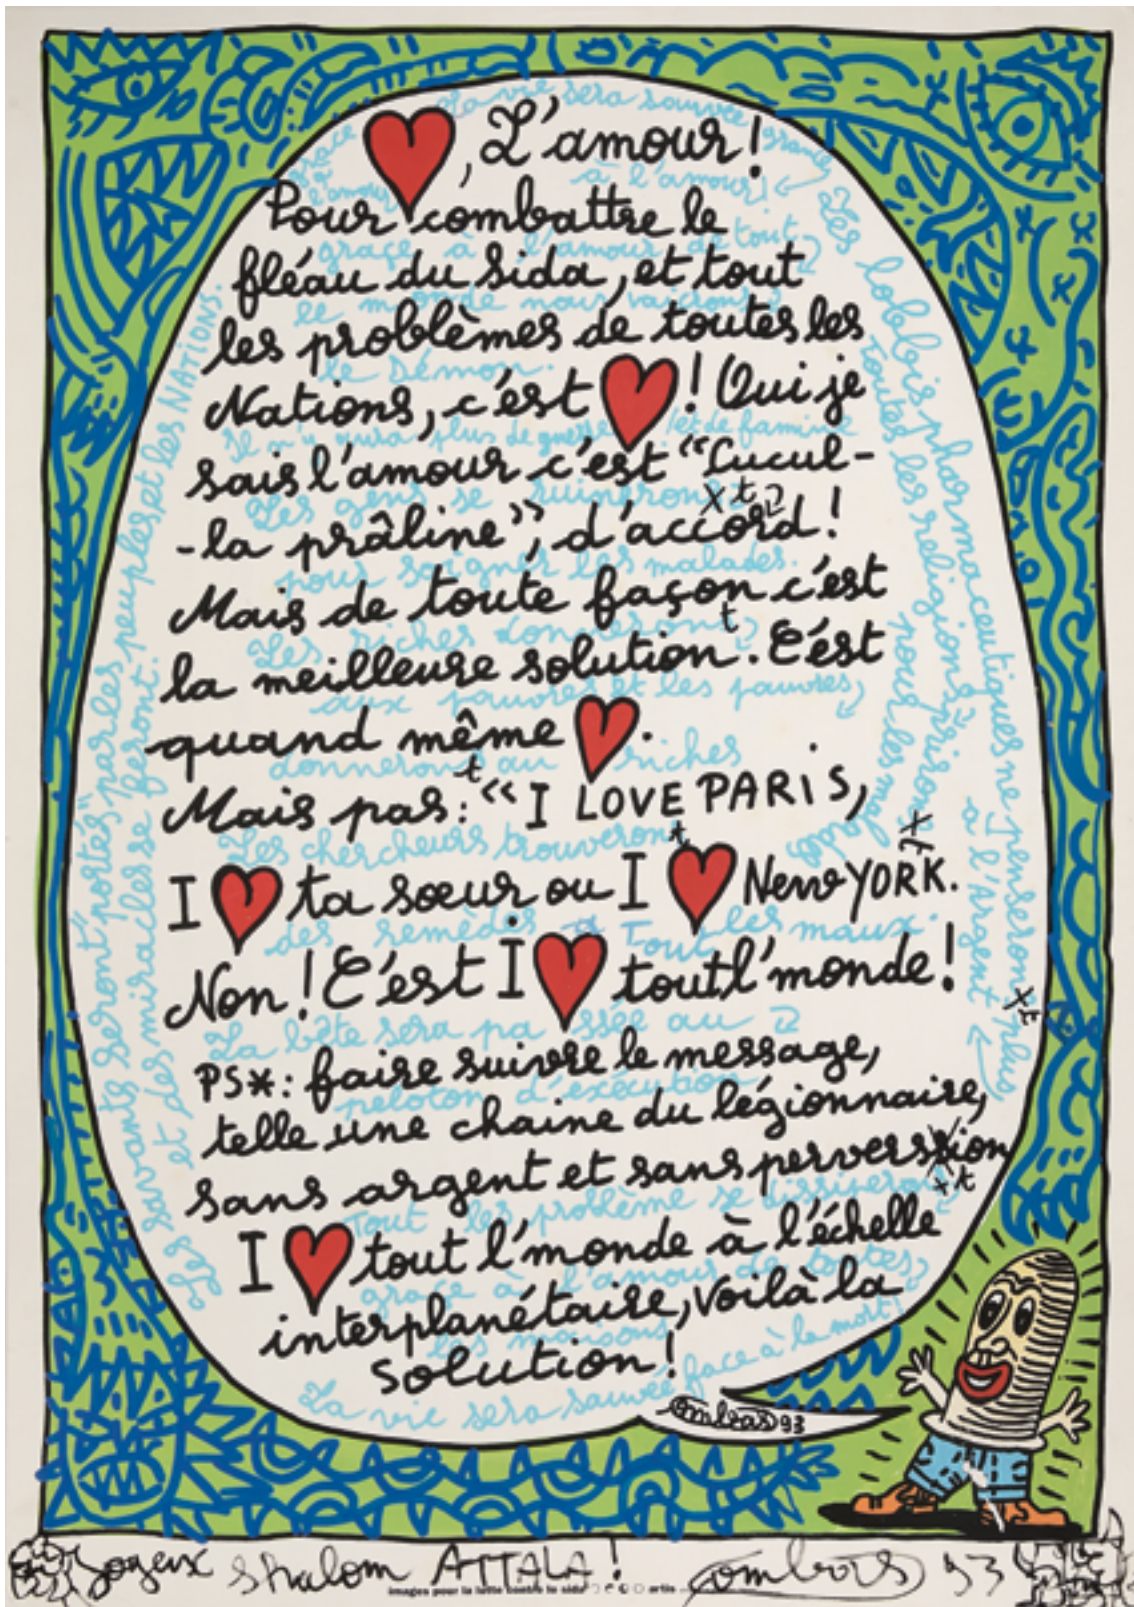 ♥, L'amour!
Pour combattre le
fléau du Sida, et tout
les problèmes de toutes les
Nations, c'ést ♥! Oui je
sais l'amour c'ést "Cucul-
-la prâline", d'accord!
Mais de toute façon c'ést
la meilleure solution. C'ést
quand même ♥.
Mais pas: "I LOVE PARiS,
I ♥ ta sœur ou I ♥ New YORK.
Non! C'ést I ♥ tout l'monde!
PS*: faire suivre le message,
telle une chaine du légionnaire,
sans argent et sans perverssion
I ♥ tout l'monde à l'échelle
interplanétaire, Voilà la
solution!
La vie sera sauvée grace
à l'amour!
grace à l'amour de tout
le monde nous vaicrons
le Démon.
Il n'y aura plus de guerre et de famine
Les gens se ruinerons
pour soigner les malades.
Les riches donnerons
aux pauvres et les pauvres,
donnerons au riches
Les chercheurs trouverons
des remèdes à Tout les maux.
La bête sera passée au
peloton d'exécution
Tout les problème se dissiperons
grace à l'amour de toutes
les maisons
La vie sera sauvée face à la mort!
Les savants seront portés par les peuples et les NATIONS.
et des miracles se feront.
Les lobbis pharmaceutiques ne penserons plus
à l'Argent
toutes les religions prirons
pour les malades
ombras 93
Joyeux shalom ATTALA! ombras 93
images pour la lutte contre le sida artis